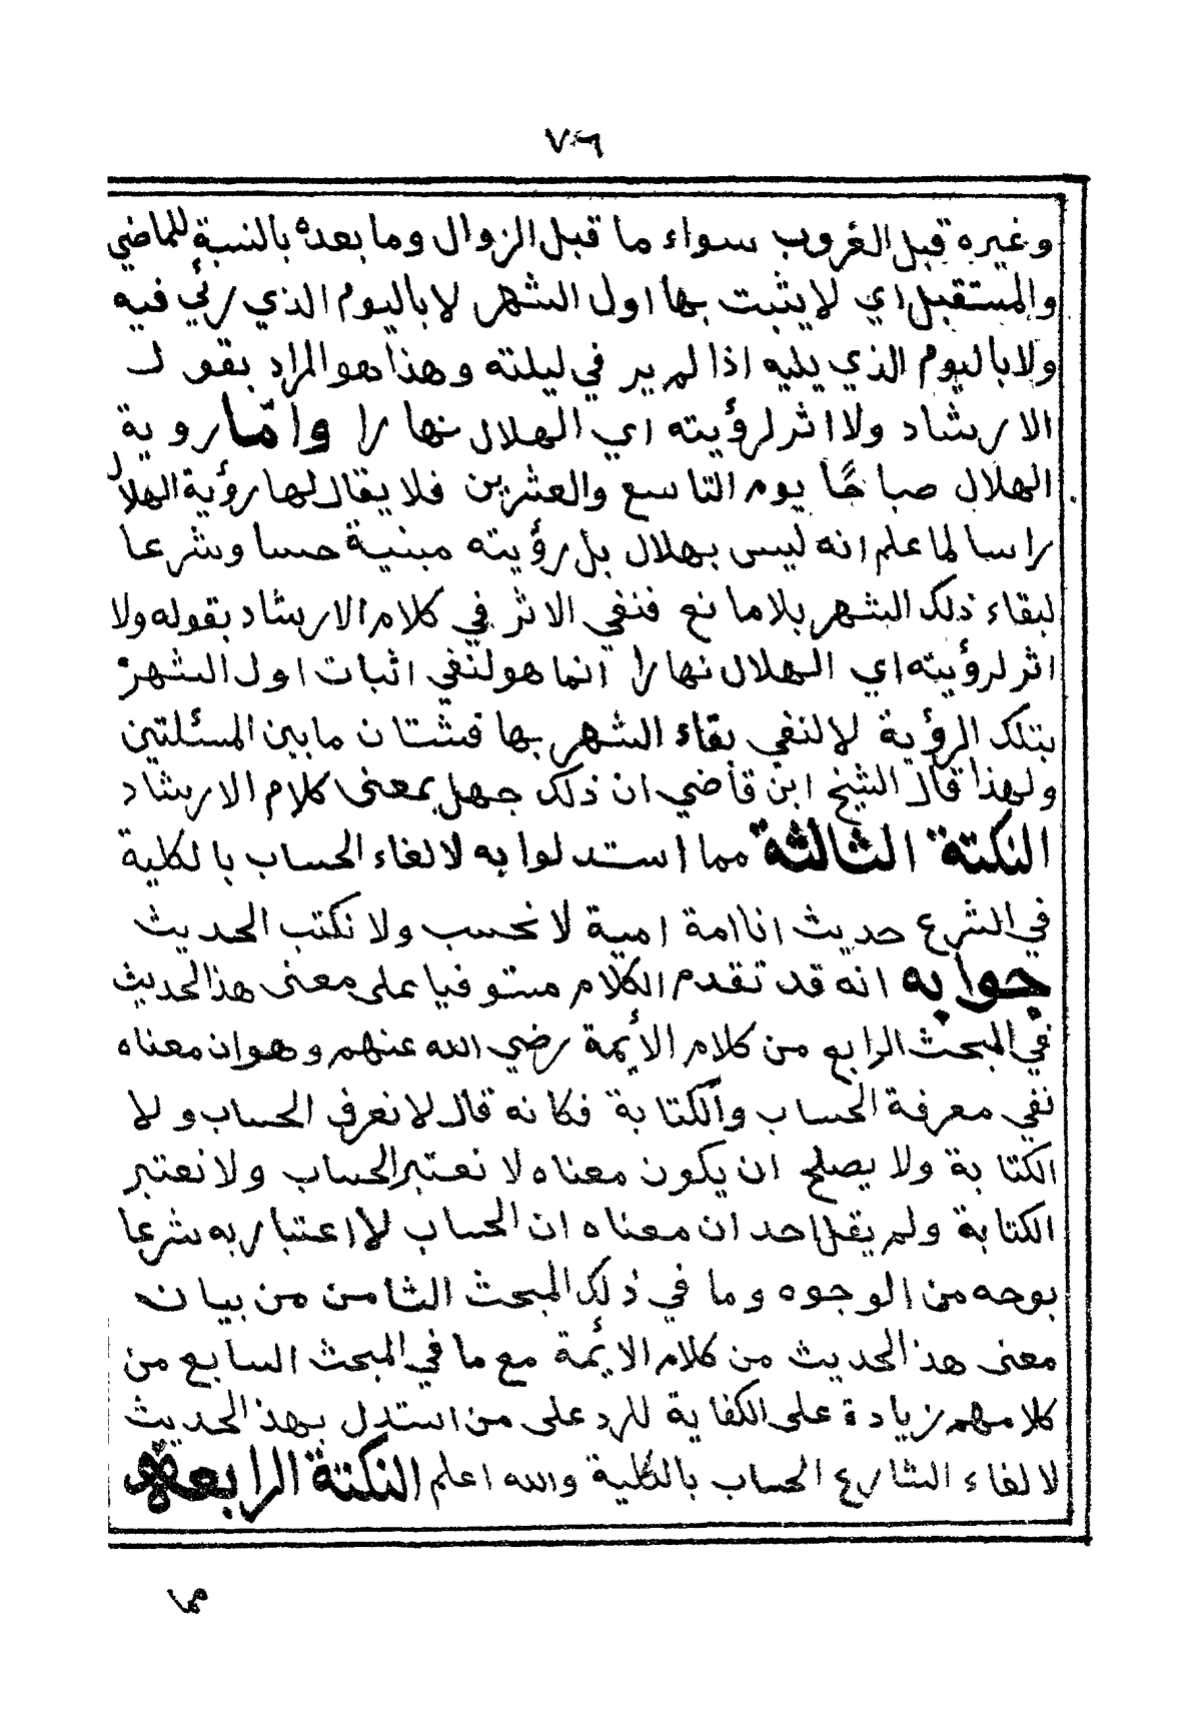 ٧٠٦
وغيره قبل الغروب سواء ما قبل الزوال وما بعده بالنسبة للماضي
والمستقبل اي لا يثبت بها اول الشهر لا باليوم الذي رئي فيه
ولا باليوم الذي يليه اذا لم ير في ليلته وهذا هو المراد بقول
الارشاد ولا اثر لرؤيته اي الهلال نهارا وامّا روية
الهلال صباحًا يوم التاسع والعشرين فلا يقال لها رؤية الهلال
راسا لما علم انه ليس بهلال بل رؤيته مبنية حسا وشرعا
لبقاء ذلك الشهر بلا مانع فنفي الاثر في كلام الارشاد بقوله ولا
اثر لرؤيته اي الهلال نهارا انما هو لنفي اثبات اول الشهر
بتلك الرؤية لا لنفي بقاء الشهر بها فشتان ما بين المسئلتين
ولهذا قال الشيخ ابن قاضي ان ذلك جهل بمعنى كلام الارشاد
النكتة الثالثة مما استدلوا به لالغاء الحساب بالكلية
في الشرع حديث انا امة امية لا نحسب ولا نكتب الحديث
جوابه انه قد تقدم الكلام مستوفيا على معنى هذا الحديث
في المبحث الرابع من كلام الأيمة رضي الله عنهم وهو ان معناه
نفي معرفة الحساب والكتابة فكانه قال لا نعرف الحساب ولا
الكتابة ولا يصلح ان يكون معناه لا نعتبر الحساب ولا نعتبر
الكتابة ولم يقل احد ان معناه ان الحساب لا اعتبار به شرعا
بوجه من الوجوه وما في ذلك المبحث الثامن من بيان
معنى هذا الحديث من كلام الأئمة مع ما في المبحث السابع من
كلامهم زيادة على الكفاية للرد على من استدل بهذا الحديث
لالغاء الشارع الحساب بالكلية والله اعلم النكتة الرابعة
مما